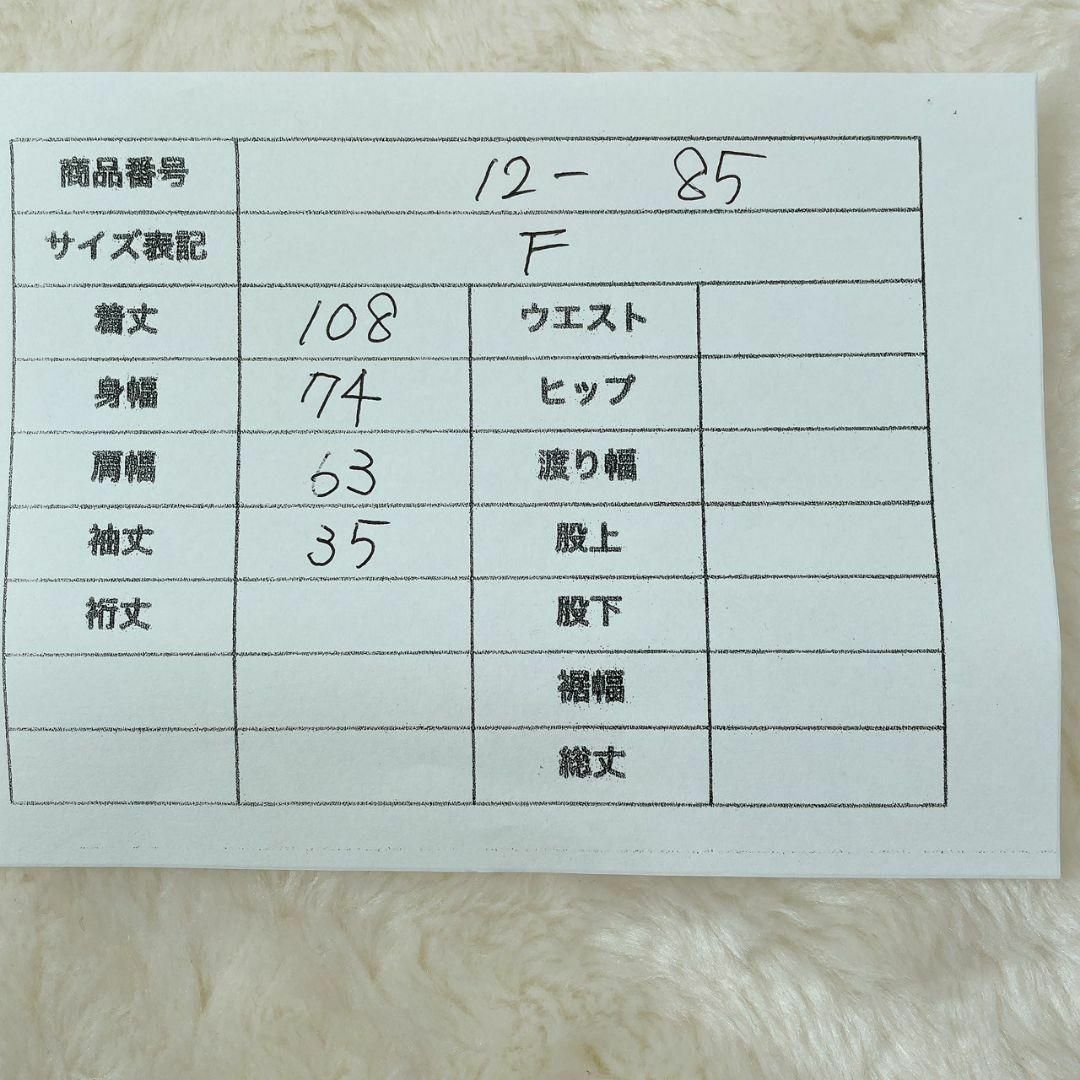 商品番号 12- 85
サイズ表記 F
着丈 108 ウエスト
身幅 74 ヒップ
肩幅 63 渡り幅
袖丈 35 股上
裄丈 股下
裾幅
総丈